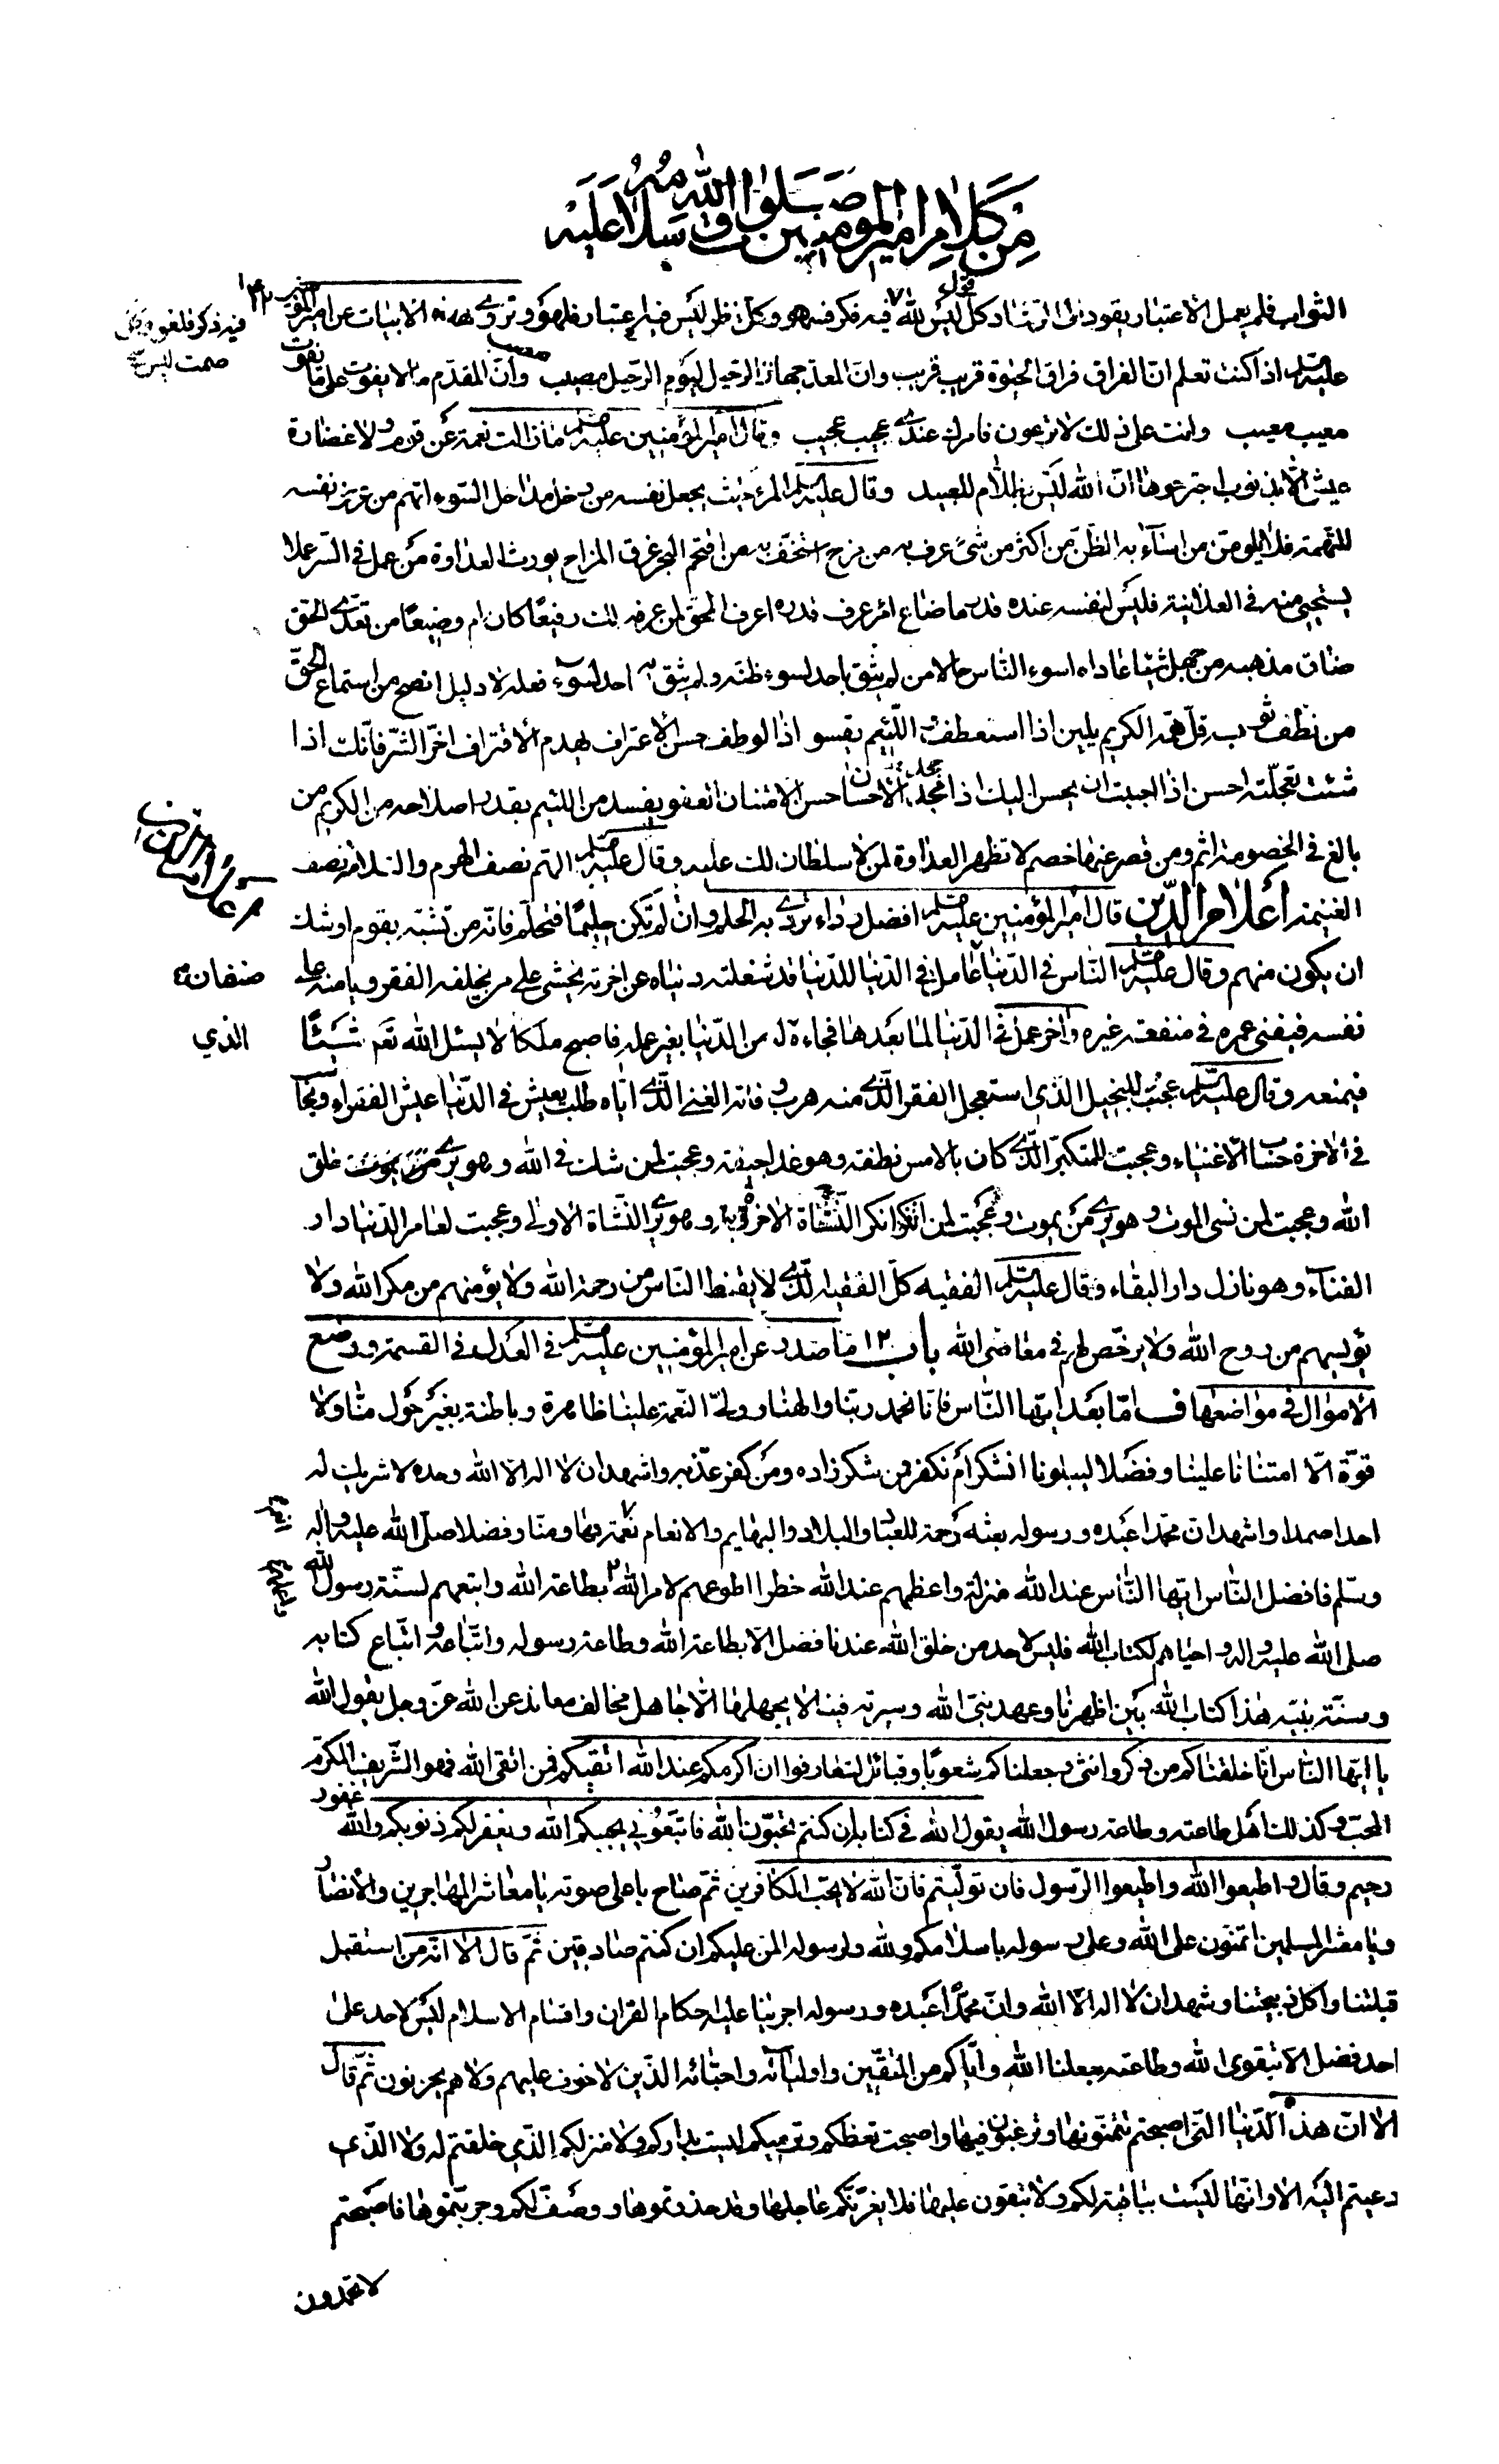 من كلام امير المؤمنين صلوات الله وسلامه عليه
الثواب فلم يعمل الاعتبار يقود الى الرشاد كل قول ليس لله فيه ذكر فلغو وكل نظر ليس فيه اعتبار فلهو وتروى هذه الابيات عن امير المؤمنين
فيه ذكر فلغو وكل
صمت ليس
عليه السلم اذا كنت تعلم ان الفراق فراق الحيوة قريب قريب وان المعد جهاز الرحيل ليوم الرحيل مصيب وان المقدم ما لا يفوت على ما يفوت
معيب معيب وانت على ذلك لا ترعوي فامرك عندى عجيب عجيب وقال امير المؤمنين عليه السلم ما زالت نعمة عن قوم ولا غضارة
عيش الا بذنوب اجترحوها ان الله ليس بظلام للعبيد وقال عليه السلم المرء حيث يجعل نفسه من دخل مداخل السوء اتهم من عرض نفسه
للتهمة فلا يلومن من اساء به الظن من اكثر من شئ عرف به من مزح استخف به من اقتحم البحر غرق المزاح يورث العداوة من عمل في السر عملا
يستحيى منه في العلانية فليس لنفسه عنده قدر ما ضاع امرء عرف قدره اعرف الحق لمن عرفه لك رفيعا كان ام وضيعا من تعدى الحق
ضاق مذهبه من جهل شيئا عاداه اسوء الناس حالا من لم يثق باحد لسوء ظنه ولم يثق به احد لسوء فعله لا دليل انصح من استماع الحق
من نظف ثوبه قل همه الكريم يلين اذا استعطف واللئيم يقسو اذا لوطف حسن الاعتراف يهدم الاقتراف اخر الشر فانك اذا
شئت تعجلته احسن اذا احببت ان يحسن اليك اذا جحد الاحسان حسن الامتنان العفو يفسد من اللئيم بقدر اصلاحه من الكريم من
بالغ في الخصومة اثم ومن قصر عنها خصم لا تظهر العداوة لمن لا سلطان لك عليه وقال عليه السلم الهم نصف الهرم والسلامة نصف
الغنيمة اعلام الدين قال امير المؤمنين عليه السلم افضل رداء تردى به الحلم وان لم تكن حليما فتحلم فانه من تشبه بقوم اوشك
ان يكون منهم وقال عليه السلم الناس في الدنيا عاملان عامل في الدنيا للدنيا قد شغلته دنياه عن اخرته يخشى على من يخلفه الفقر ويامنه على
صنفان
نفسه فيفنى عمره في منفعة غيره واخر عمل في الدنيا لما بعدها فجاءه له من الدنيا بغير عمله فاصبح ملكا لا يسئل الله تعم شيئا
الذي
فيمنعه وقال عليه السلم عجبت للبخيل الذي استعجل الفقر الذى منه هرب وفاته الغنى الذى اياه طلب يعيش في الدنيا عيش الفقراء ويحاسب
في الاخرة حساب الاغنياء وعجبت للمتكبر الذى كان بالامس نطفة وهو غدا جيفة وعجبت لمن شك في الله وهو يرى خلق
الله وعجبت لمن نسى الموت وهو يرى من يموت وعجبت لمن انكر النشاة الاخرة وهو يرى النشاة الاولى وعجبت لعامر الدنيا دار
الفناء وهو نازل دار البقاء وقال عليه السلم الفقيه كل الفقيه الذى لا يقنط الناس من رحمة الله ولا يؤمنهم من مكر الله ولا
يؤيسهم من روح الله ولا يرخص لهم في معاصي الله باب ١٢ ما صدر عن امير المؤمنين عليه السلم في العدل في القسمة ووضع
الاموال في مواضعها ف اما بعد ايها الناس فانا نحمد ربنا والهنا وولى النعمة علينا ظاهرة وباطنة بغير حول منا ولا
قوة الا امتنانا علينا وفضلا ليبلونا انشكر ام نكفر فمن شكر زاده ومن كفر عذبه واشهد ان لا اله الا الله وحده لا شريك له
احدا صمدا واشهد ان محمدا عبده ورسوله بعثه رحمة للعباد والبلاد والبهايم والانعام نعمة بها ومنا وفضلا صلى الله عليه واله
وسلم فافضل الناس ايها الناس عند الله منزلة واعظمهم عند الله خطرا اطوعهم لامر الله بطاعة الله واتبعهم لسنة رسول الله
صلى الله عليه واله واحياهم لكتاب الله فليس لاحد من خلق الله عندنا فضل الا بطاعة الله وطاعة رسوله واتباعه واتباع كتابه
وسنة نبيه هذا كتاب الله بين اظهرنا وعهد نبي الله وسيرته فينا لا يجهلها الا جاهل مخالف معاند عن الله عز وجل يقول الله
يا ايها الناس انا خلقناكم من ذكر وانثى وجعلناكم شعوبا وقبائل لتعارفوا ان اكرمكم عند الله اتقيكم فمن اتقى الله فهو الشريف المكرم
المحب وكذلك اهل طاعته وطاعة رسول الله يقول الله في كتابه ان كنتم تحبون الله فاتبعوني يحببكم الله ويغفر لكم ذنوبكم والله غفور
رحيم وقال واطيعوا الله واطيعوا الرسول فان توليتم فان الله لا يحب الكافرين ثم صاح باعلى صوته يا معاشر المهاجرين والانصار
ويا معشر المسلمين اتمنون على الله وعلى رسوله باسلامكم ولله ولرسوله المن عليكم ان كنتم صادقين ثم قال الا انه من استقبل
قبلتنا واكل ذبيحتنا وشهد ان لا اله الا الله وان محمدا عبده ورسوله اجرينا عليه احكام القران واقسام الاسلام ليس لاحد على
احد فضل الا بتقوى الله وطاعته جعلنا الله واياكم من المتقين واوليائه واحبائه الذين لا خوف عليهم ولا هم يحزنون ثم قال
الا ان هذه الدنيا التى اصبحتم تتمنونها وترغبون فيها واصبحت تعظكم وترميكم ليست بداركم ولا منزلكم الذي خلقتم له ولا الذي
دعيتم اليه الا وانها ليست بباقية لكم ولا تبقون عليها فلا يغرنكم عاجلها وقد حذرتموها ووصف لكم وجربتموها فاصبحتم
لا تحمدون